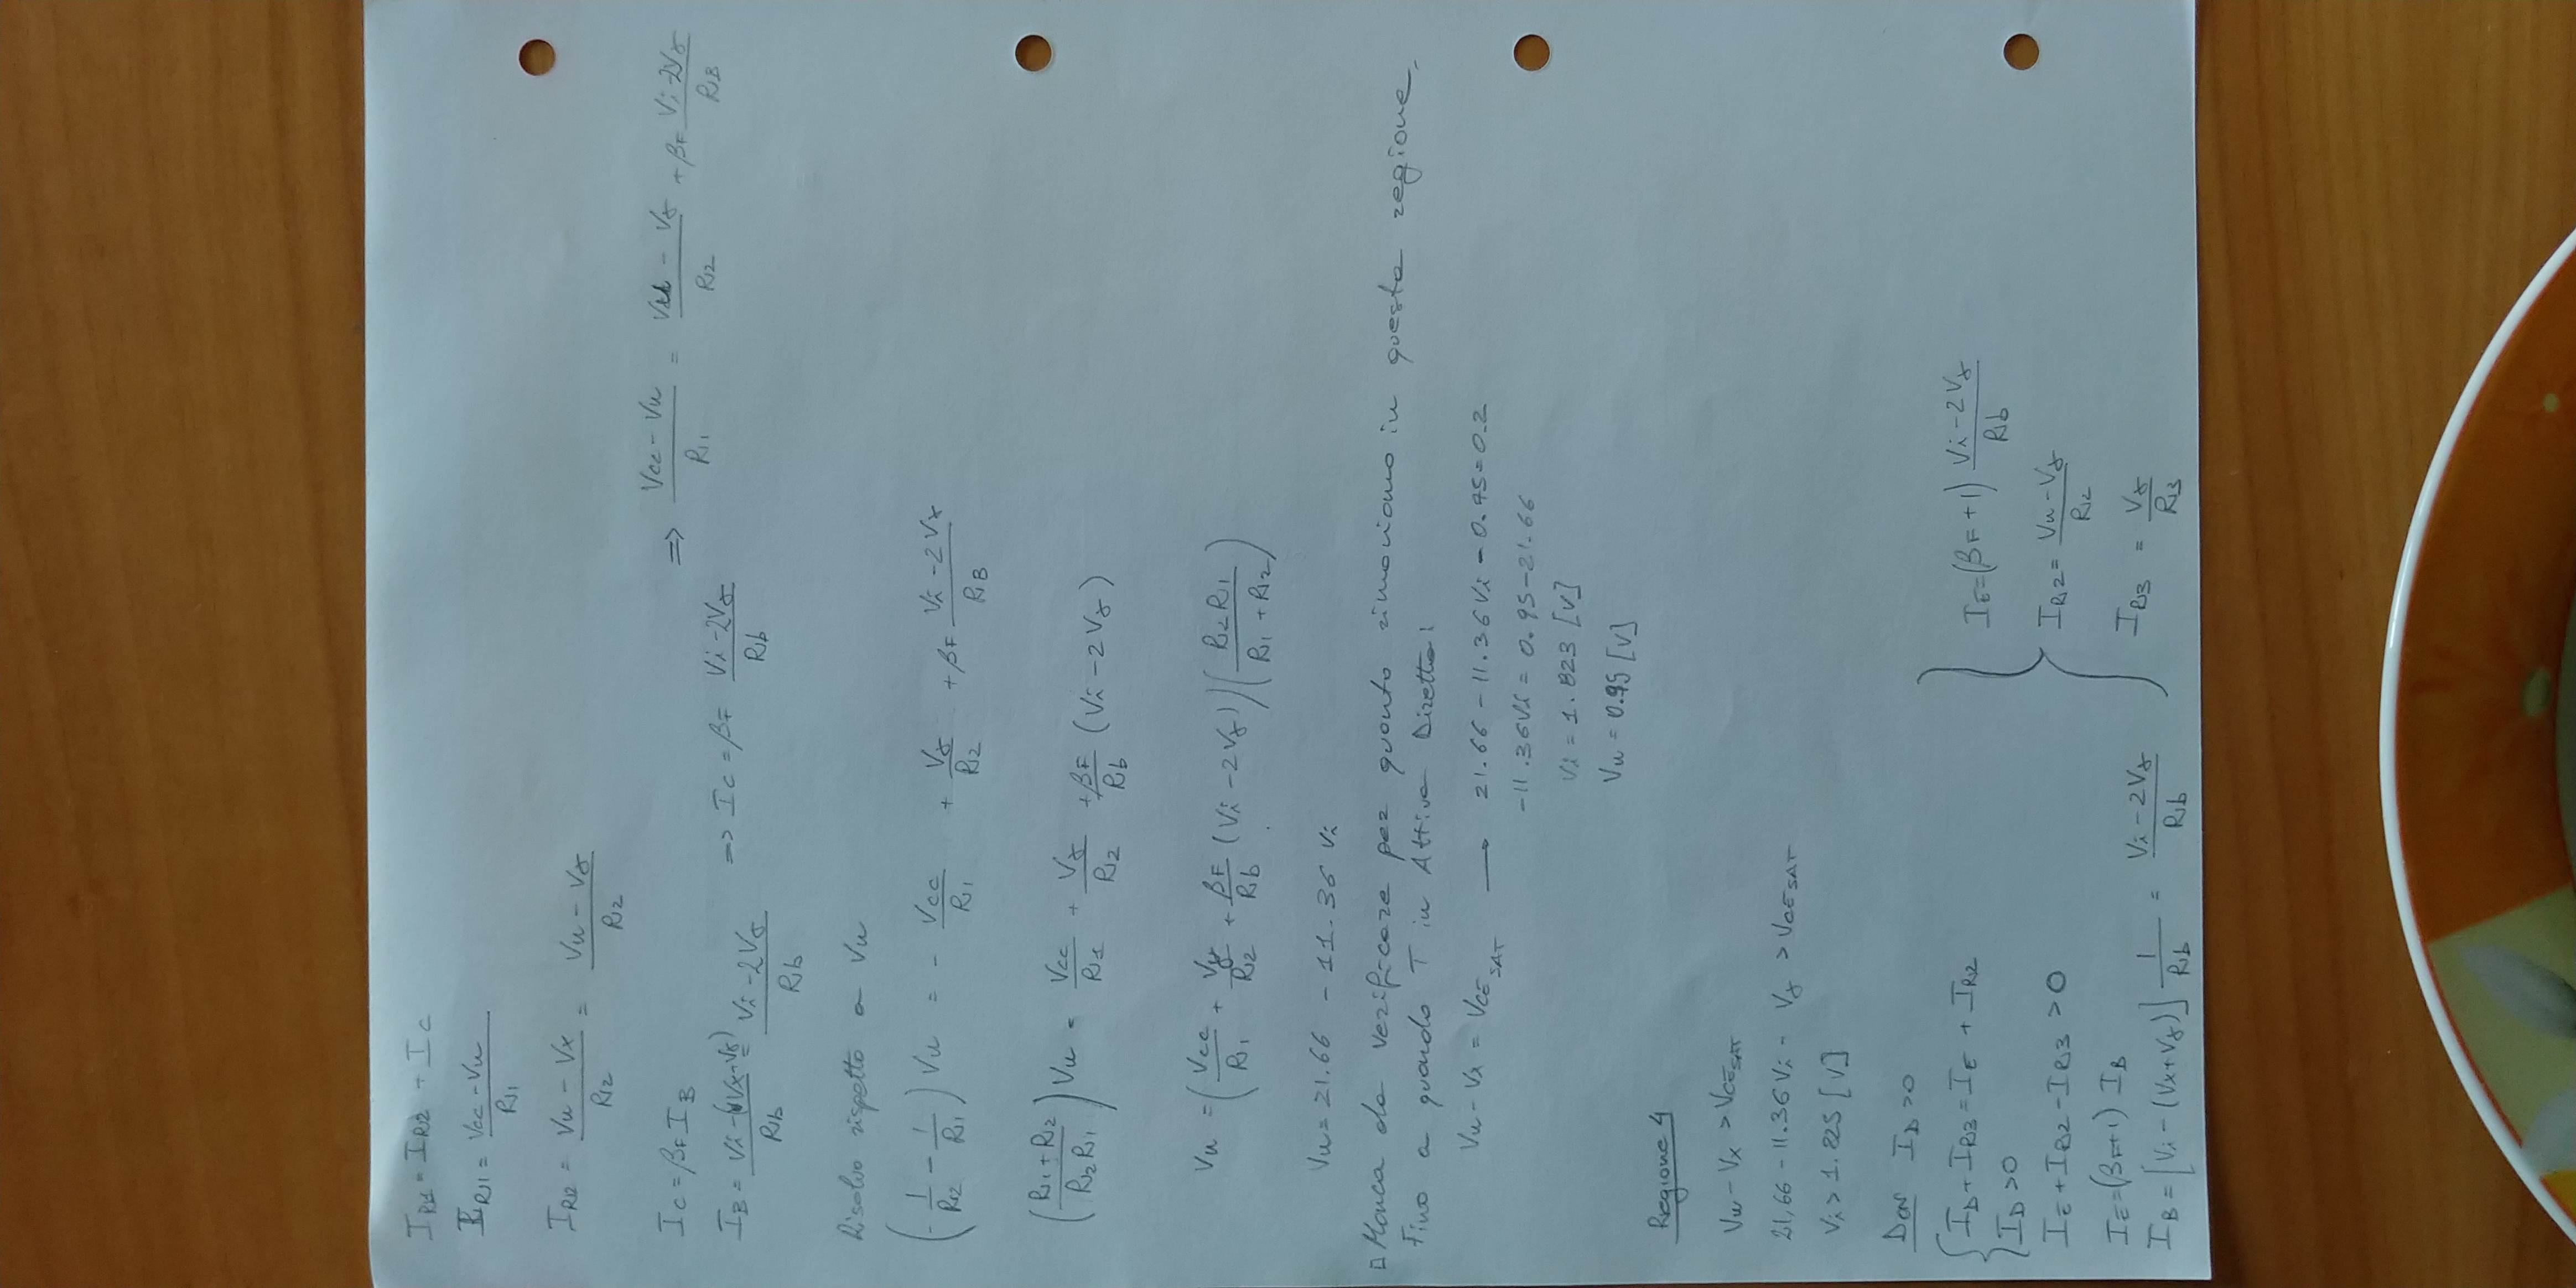 I_R1 = I_R2 + I_C
I_R1 = (Vcc - Vu) / R1
I_R2 = (Vu - Vx) / R2 = (Vu - Vγ) / R2
I_C = βF I_B
I_B = (Vi - (Vx - Vγ)) / Rb = (Vi - 2Vγ) / Rb => I_C = βF (Vi - 2Vγ) / Rb => (Vcc - Vu) / R1 = (Vu - Vγ) / R2 + βF (Vi - 2Vγ) / RB
Risolvo rispetto a Vu
(- 1/R2 - 1/R1) Vu = - Vcc/R1 + Vγ/R2 + βF (Vi - 2Vγ) / RB
((R1 + R2) / (R2 R1)) Vu = Vcc/R1 + Vγ/R2 + βF/Rb (Vi - 2Vγ)
Vu = (Vcc/R1 + Vγ/R2 + βF/Rb (Vi - 2Vγ)) ((R2 R1) / (R1 + R2))
Vu = 21.66 - 11.36 Vi
□ Manca da verificare per quanto rimaniamo in questa regione,
Fino a quando T in Attiva Diretta:
Vu - Vx = VCE_SAT → 21.66 - 11.36 Vi - 0.75 = 0.2
-11.36 Vi = 0.95 - 21.66
Vi = 1.823 [V]
Vu = 0.95 [V]
Regione 4
Vu - Vx > VCE_SAT
21,66 - 11.36 Vi - Vγ > VCE_SAT
Vi > 1.825 [V]
D ON I_D > 0
{ I_D + I_R3 = I_E + I_R2
I_D > 0
I_E + I_R2 - I_R3 > 0
I_E = (βF+1) I_B
I_B = [Vi - (Vx + Vγ)] 1/Rb = (Vi - 2Vγ) / Rb
} I_E = (βF + 1) (Vi - 2Vγ) / Rb
I_R2 = (Vu - Vγ) / R2
I_R3 = Vγ / R3